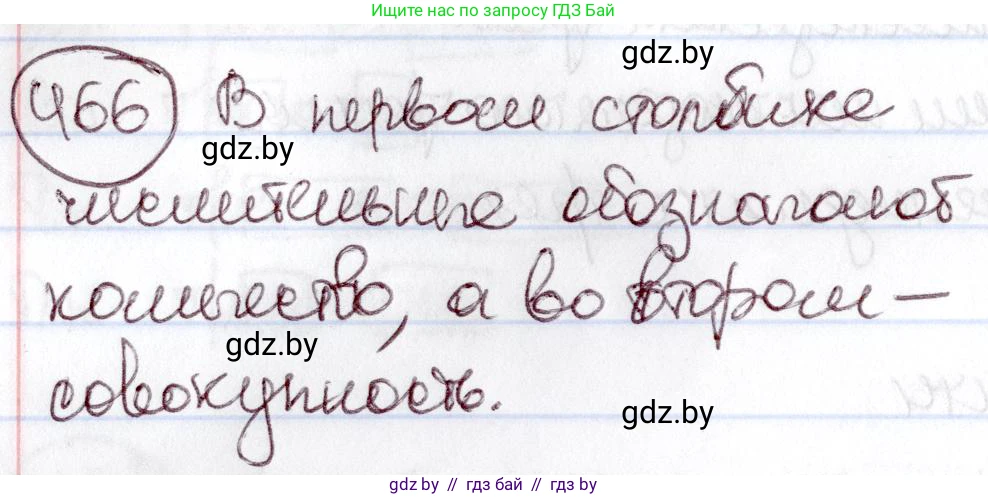 Ищите нас по запросу ГДЗ Бай
gdz.by
466 В первом столбике
gdz.by
числительные обозначают
количество, а во втором —
gdz.by
совокупность.
gdz.by
gdz.by // гдз бай // gdz.by